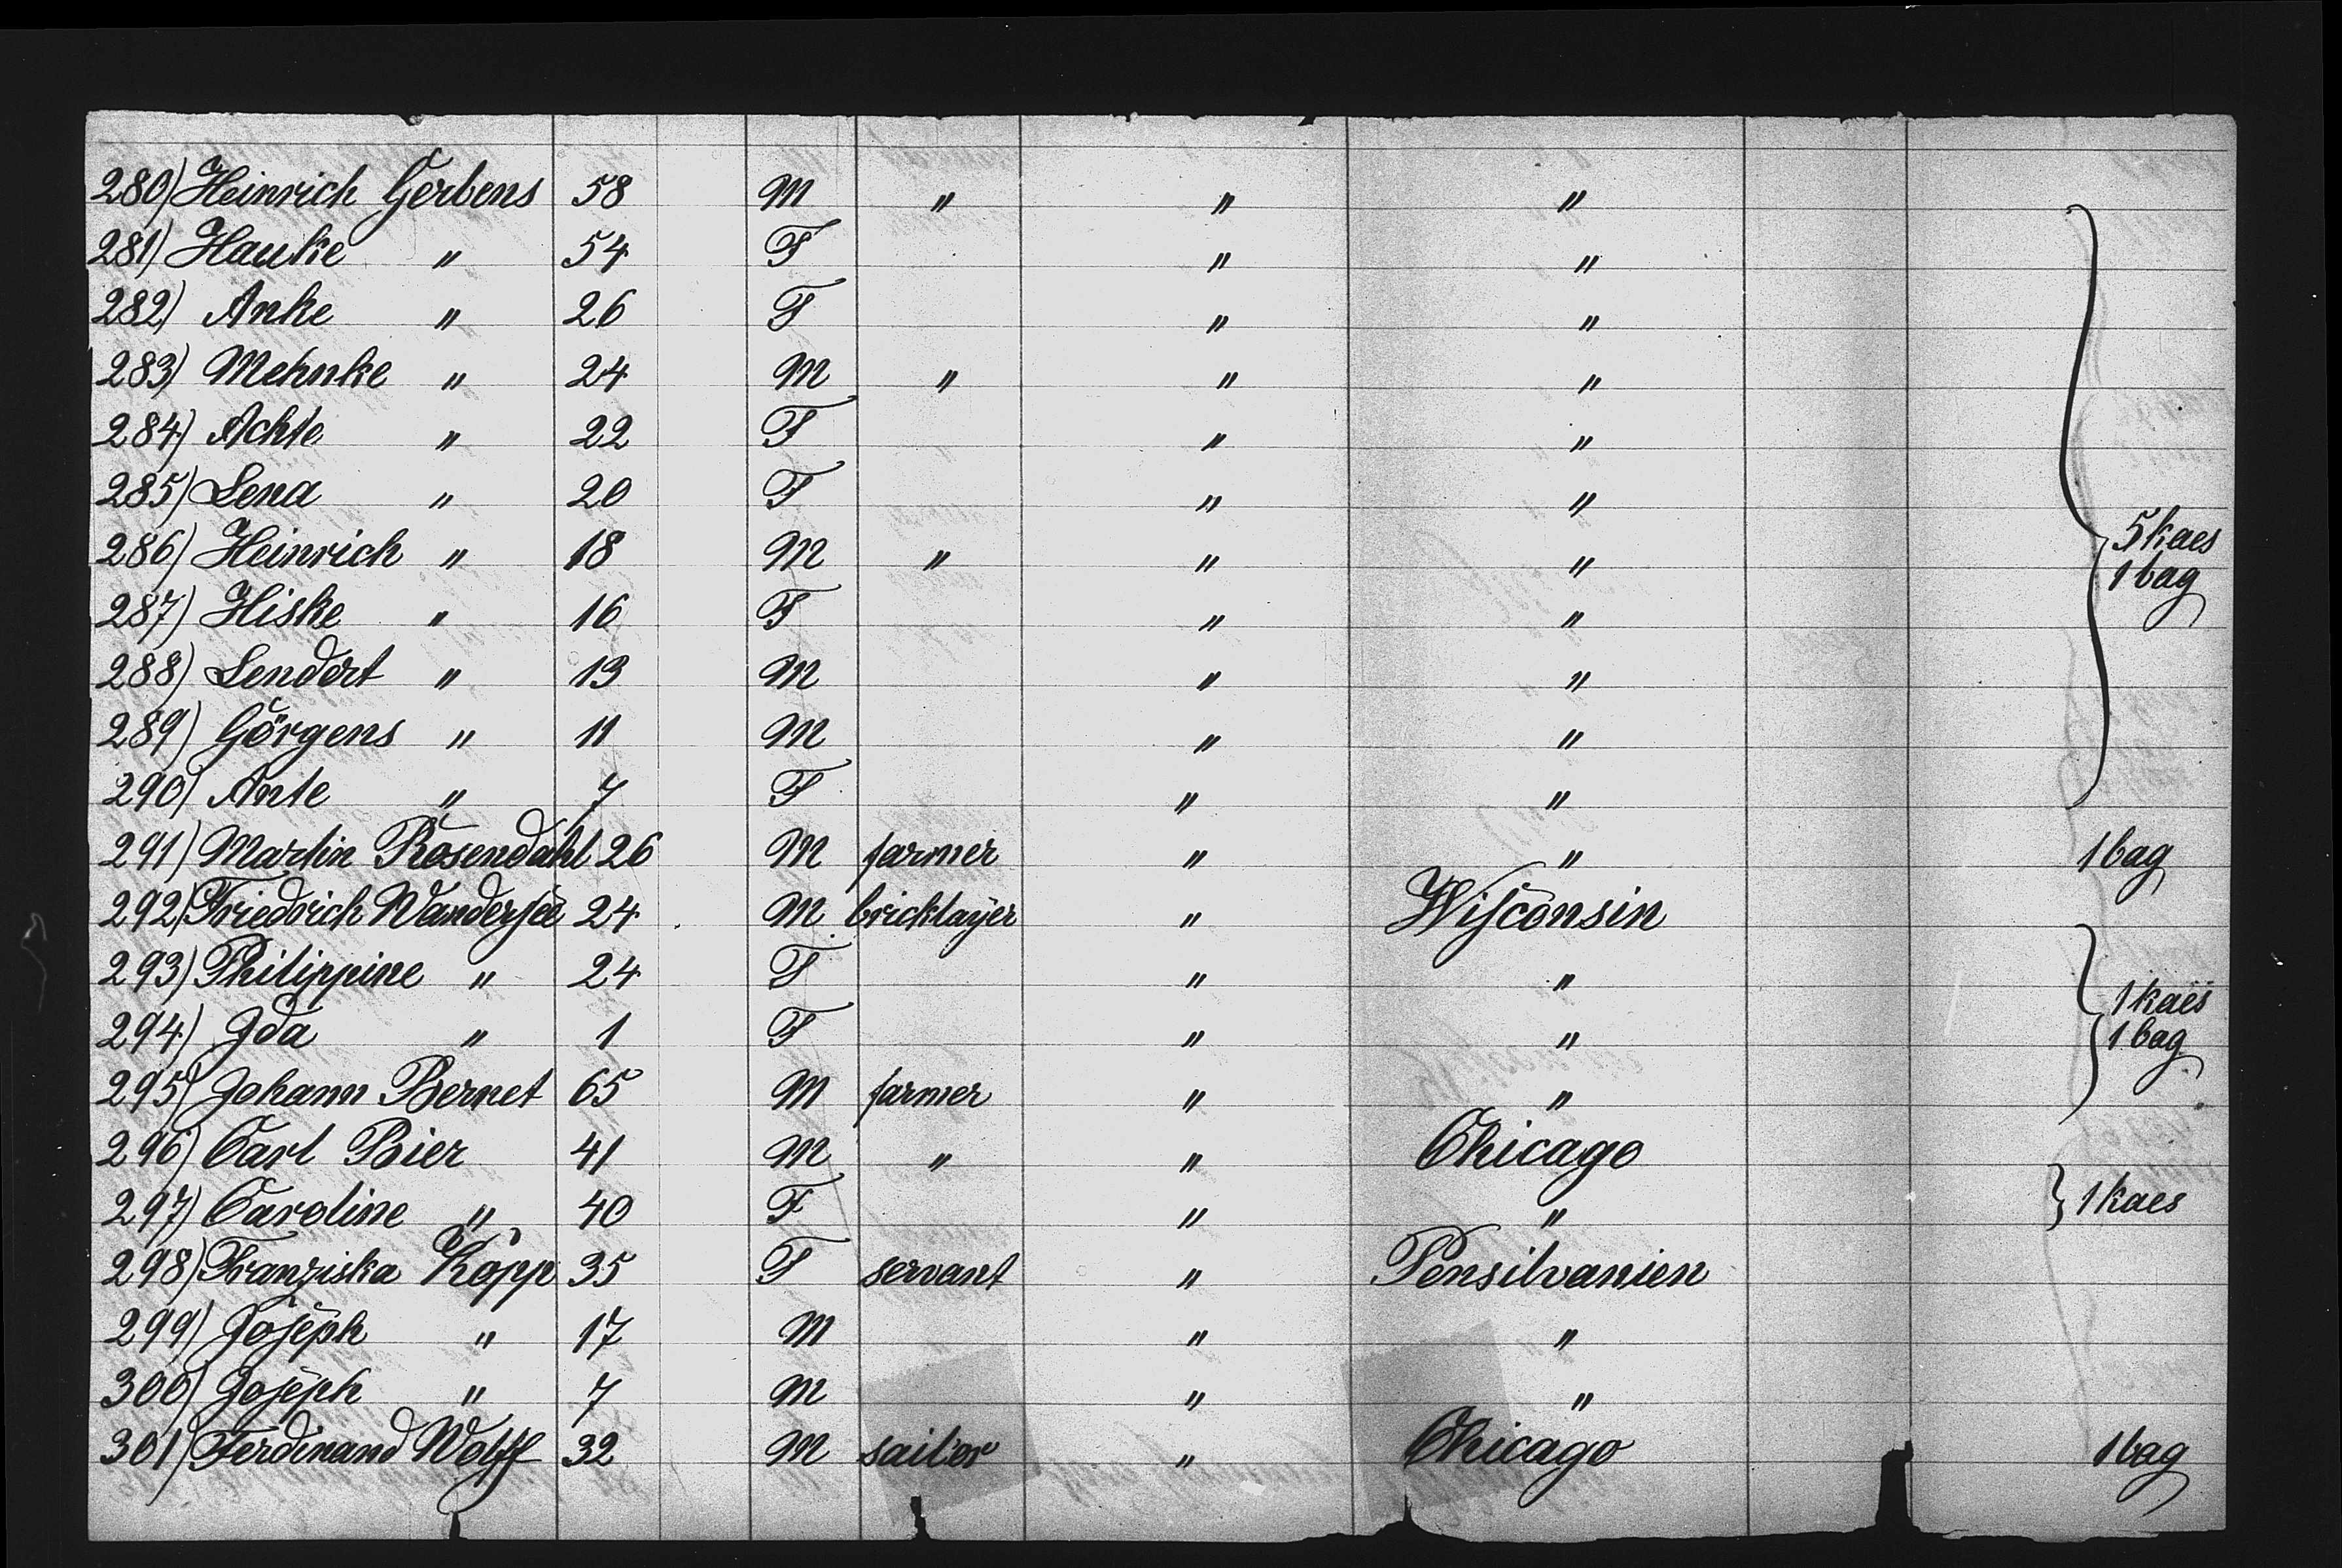 280) Heinrich Gerbens 58 M " " "
281) Hauke " 54 F " "
282) Anke " 26 F " "
283) Mehnke " 24 M " " "
284) Achte " 22 F " "
285) Lena " 20 F " "
286) Heinrich " 18 M " " " 5 kaes
287) Hiske " 16 F " " 1 bag
288) Lendert " 13 M " "
289) Görgens " 11 M " "
290) Ante " 7 F " "
291) Martin Rosendahl 26 M farmer " " 1 bag
292) Friedrich Wanderseé 24 M bricklayer " Wisconsin
293) Philippine " 24 F " " 1 kaes
294) Ida " 1 F " " 1 bag
295) Johann Bernet 65 M farmer " "
296) Carl Bier 41 M " " Chicago
297) Caroline " 40 F " " 1 kaes
298) Franziska Kopp 35 F servant " Pensilvanien
299) Joseph " 17 M " "
300) Joseph " 7 M " "
301) Ferdinand Wolff 32 M sailor " Chicago 1 bag